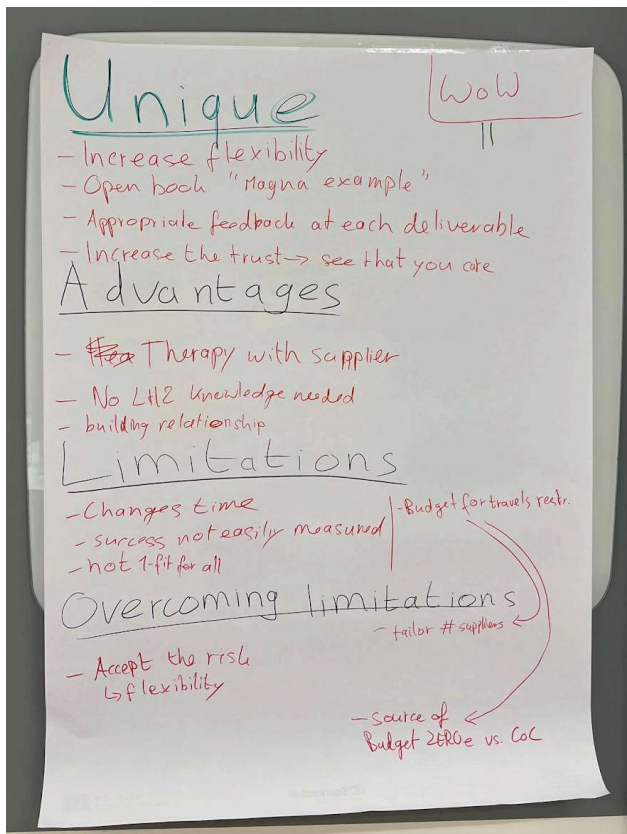 Unique
WoW
- Increase flexibility
- Open book "Magna example"
- Appropriate feedback at each deliverable
- Increase the trust → see that you care
Advantages
- Therapy with supplier
- No LH2 knowledge needed
- building relationship
Limitations
- Changes time
- success not easily measured
- not 1-fit for all
- Budget for travels restr.
Overcoming limitations
- tailor # suppliers
- Accept the risk
↳ flexibility
- source of
Budget ZEROe vs. CoC